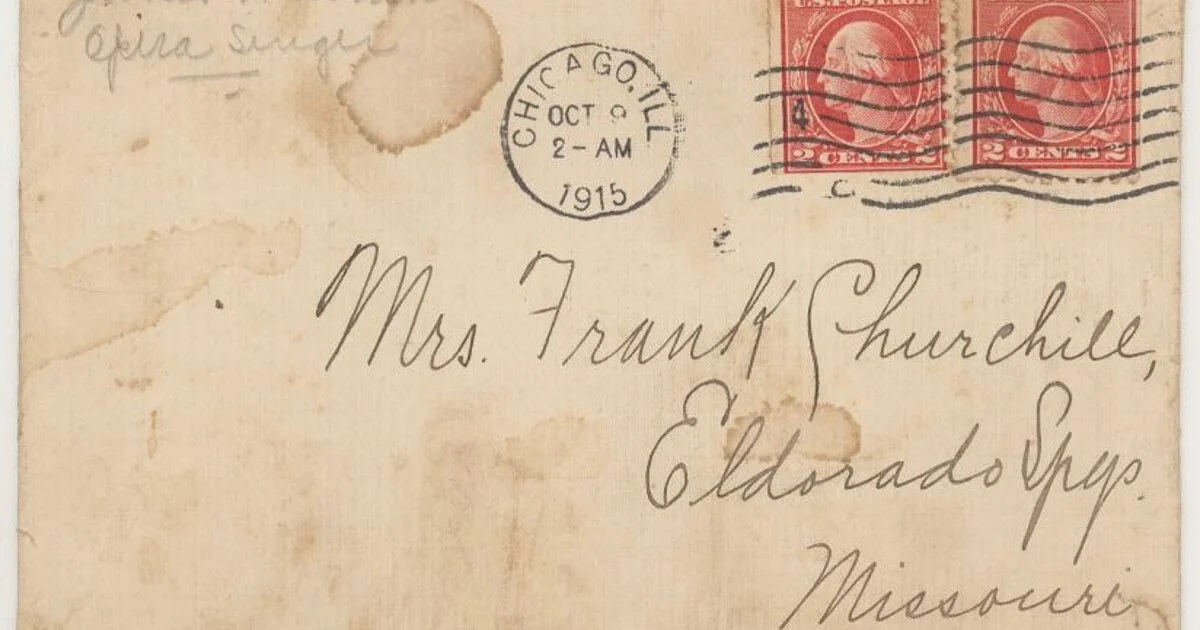 Opera Singer
U.S. POSTAGE
2 CENTS 2
2 CENTS 2
CHICAGO, ILL
OCT 9
2-AM
1915
4
C.
Mrs. Frank Churchill,
Eldorado Spgs.
Missouri